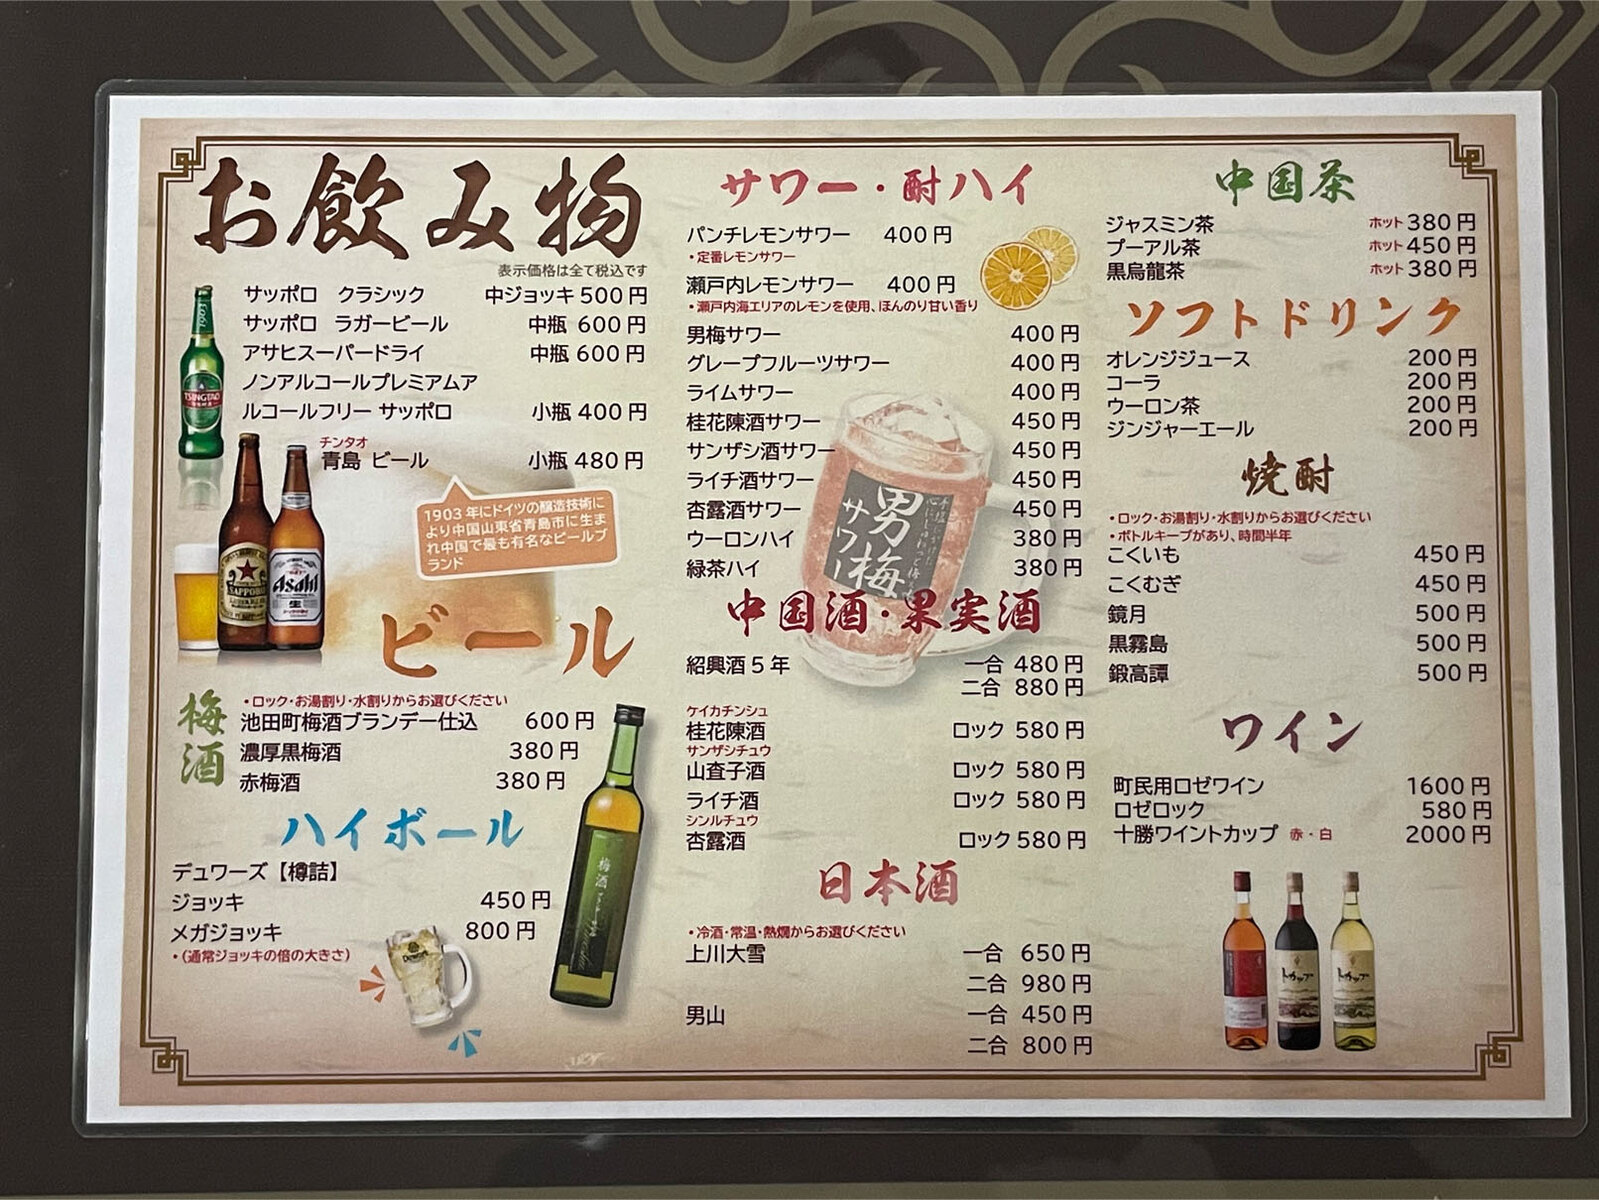 お飲み物
表示価格は全て税込です
サッポロ クラシック 中ジョッキ 500円
サッポロ ラガービール 中瓶 600円
アサヒスーパードライ 中瓶 600円
ノンアルコールプレミアムア
ルコールフリー サッポロ 小瓶 400円
チンタオ
青島 ビール 小瓶 480円
1903年にドイツの醸造技術に
より中国山東省青島市に生ま
れ中国で最も有名なビールブ
ランド
1903
TSINGTAO
SAPPORO
Asahi
生
ビール
梅酒
・ロック・お湯割り・水割りからお選びください
池田町梅酒ブランデー仕込 600円
濃厚黒梅酒 380円
赤梅酒 380円
梅酒
ハイボール
デュワーズ【樽詰】
ジョッキ 450円
メガジョッキ 800円
・(通常ジョッキの倍の大きさ)
サワー・酎ハイ
パンチレモンサワー 400円
・定番レモンサワー
瀬戸内レモンサワー 400円
・瀬戸内海エリアのレモンを使用、ほんのり甘い香り
男梅サワー 400円
グレープフルーツサワー 400円
ライムサワー 400円
桂花陳酒サワー 450円
サンザシ酒サワー 450円
ライチ酒サワー 450円
杏露酒サワー 450円
ウーロンハイ 380円
緑茶ハイ 380円
男梅
サワー
中国酒・果実酒
紹興酒5年 一合 480円
二合 880円
ケイカチンシュ
桂花陳酒 ロック 580円
サンザシチュウ
山査子酒 ロック 580円
ライチ酒 ロック 580円
シンルチュウ
杏露酒 ロック 580円
日本酒
・冷酒・常温・熱燗からお選びください
上川大雪 一合 650円
二合 980円
男山 一合 450円
二合 800円
中国茶
ジャスミン茶 ホット 380円
プーアル茶 ホット 450円
黒烏龍茶 ホット 380円
ソフトドリンク
オレンジジュース 200円
コーラ 200円
ウーロン茶 200円
ジンジャーエール 200円
焼酎
・ロック・お湯割り・水割りからお選びください
・ボトルキープがあり、時間半年
こくいも 450円
こくむぎ 450円
鏡月 500円
黒霧島 500円
鍛高譚 500円
ワイン
町民用ロゼワイン 1600円
ロゼロック 580円
十勝ワイントカップ 赤・白 2000円
トカップ
トカップ